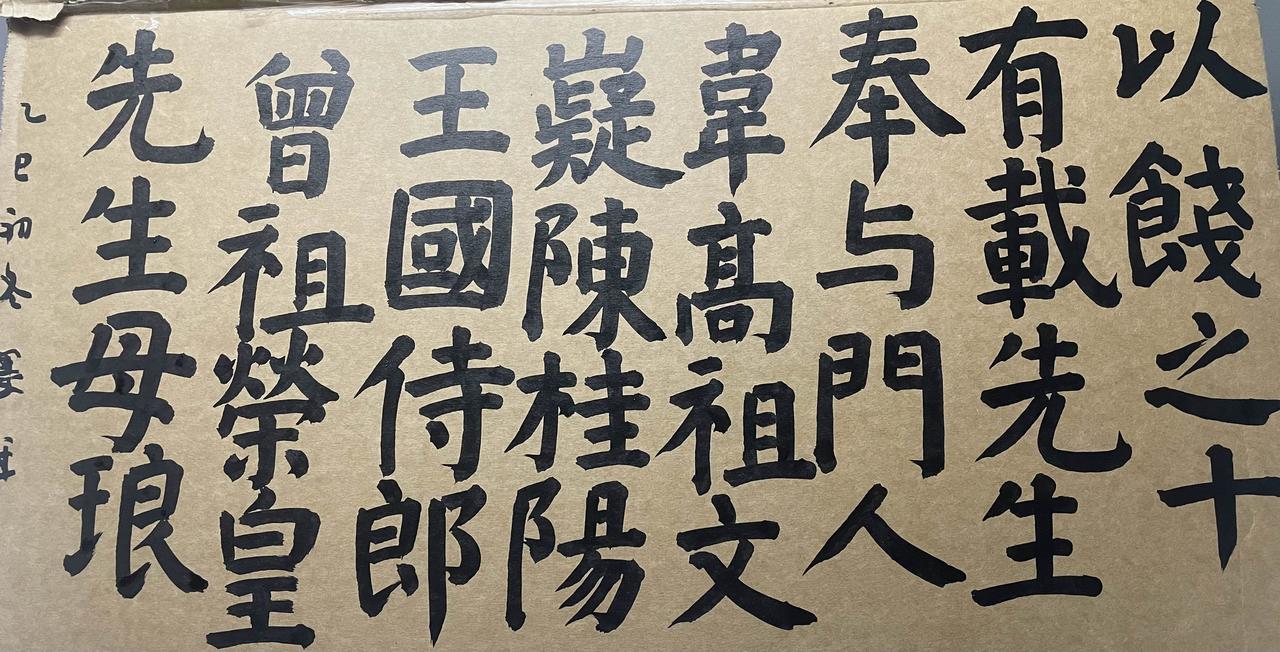 以餞之十
有載先生
奉与門人
韋高祖文
嶷陳桂陽
王國侍郎
曾祖榮皇
先生母琅
乙巳初冬